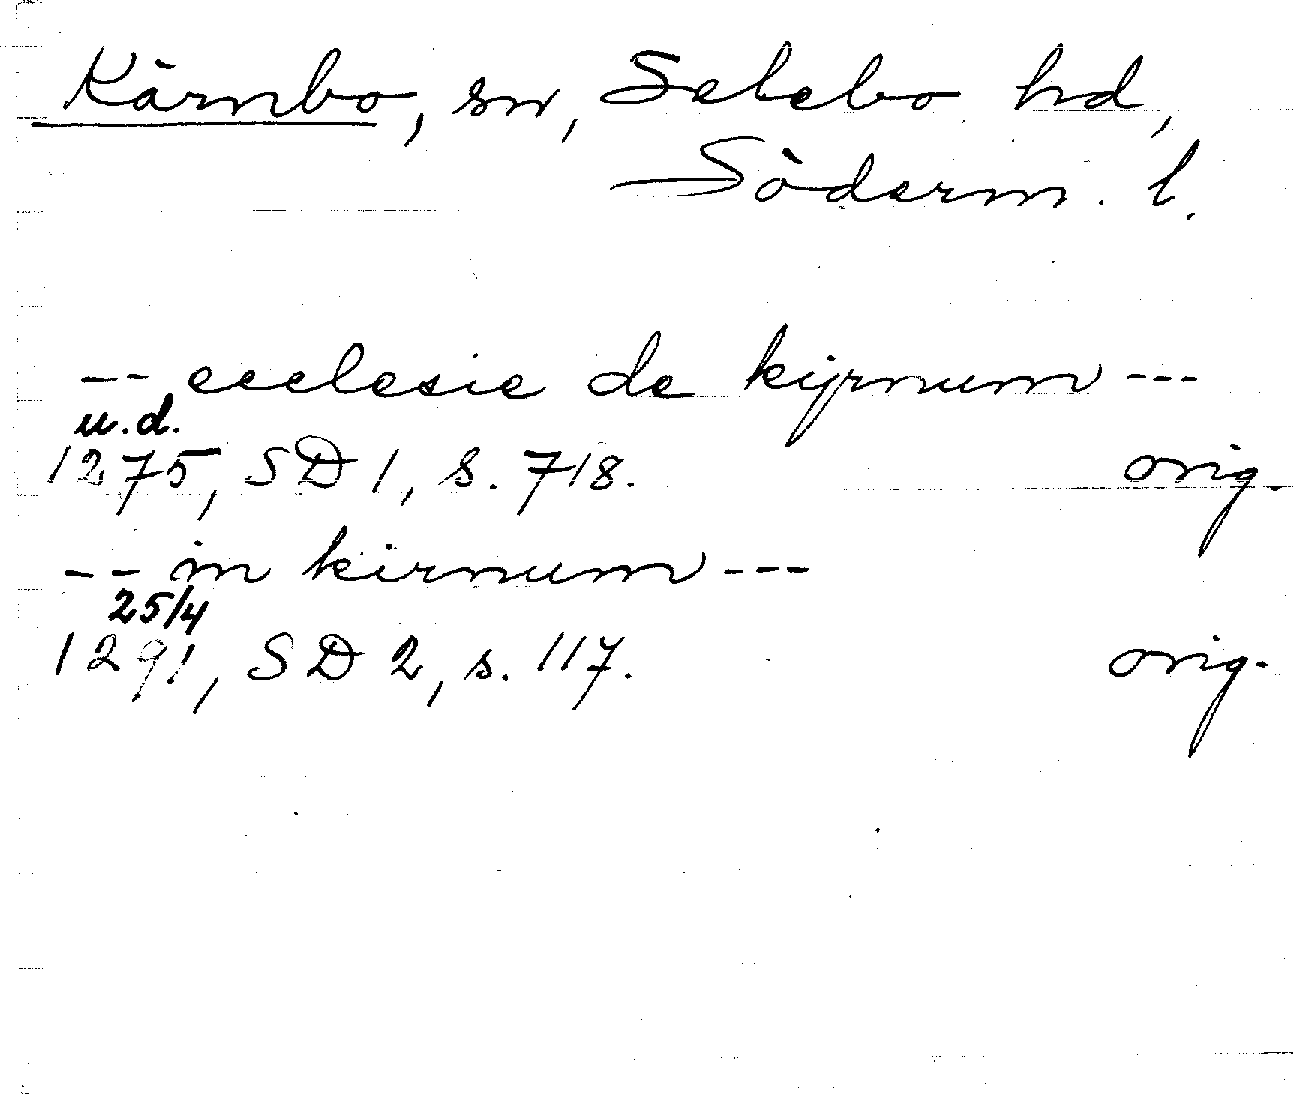 Kärnbo, sn, Selebo hd,
Söderm. l.
-- ecclesie de kijrnum ---
u.d.
1275, SD 1, s. 718. orig.
-- in kirnum ---
25/4
1291, SD 2, s. 117. orig.